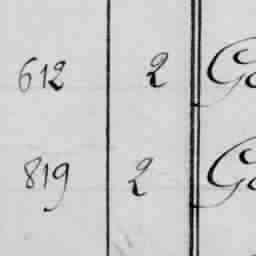 612 2
819 2